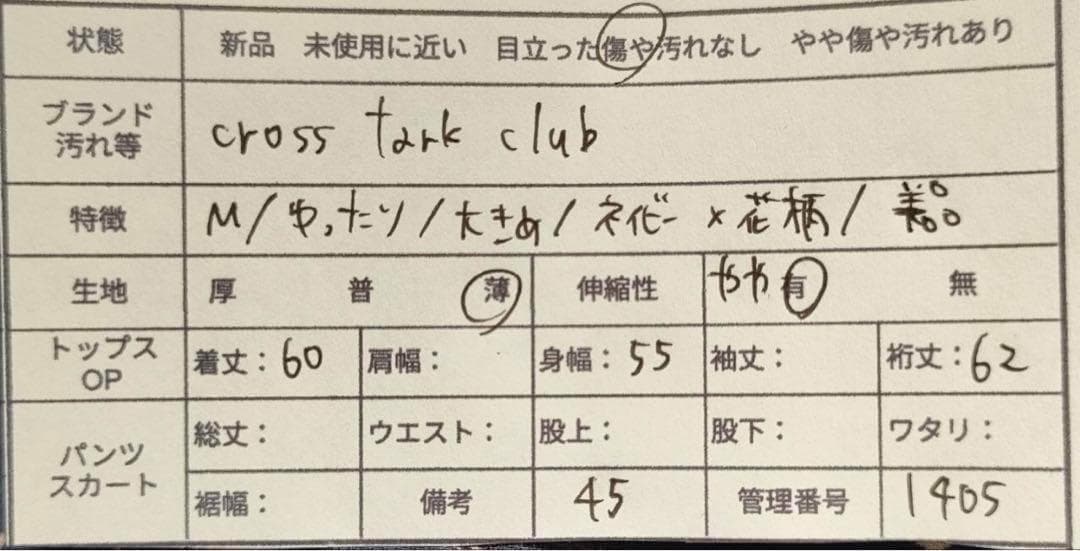 状態 新品 未使用に近い 目立った傷や汚れなし やや傷や汚れあり
ブランド 汚れ等 cross tark club
特徴 M/ゆったり/大きめ/ネイビー×花柄/美品
生地 厚 普 薄 伸縮性 やや 有 無
トップス OP 着丈：60 肩幅： 身幅：55 袖丈： 裄丈：62
パンツ スカート 総丈： ウエスト： 股上： 股下： ワタリ：
裾幅： 備考 45 管理番号 1405